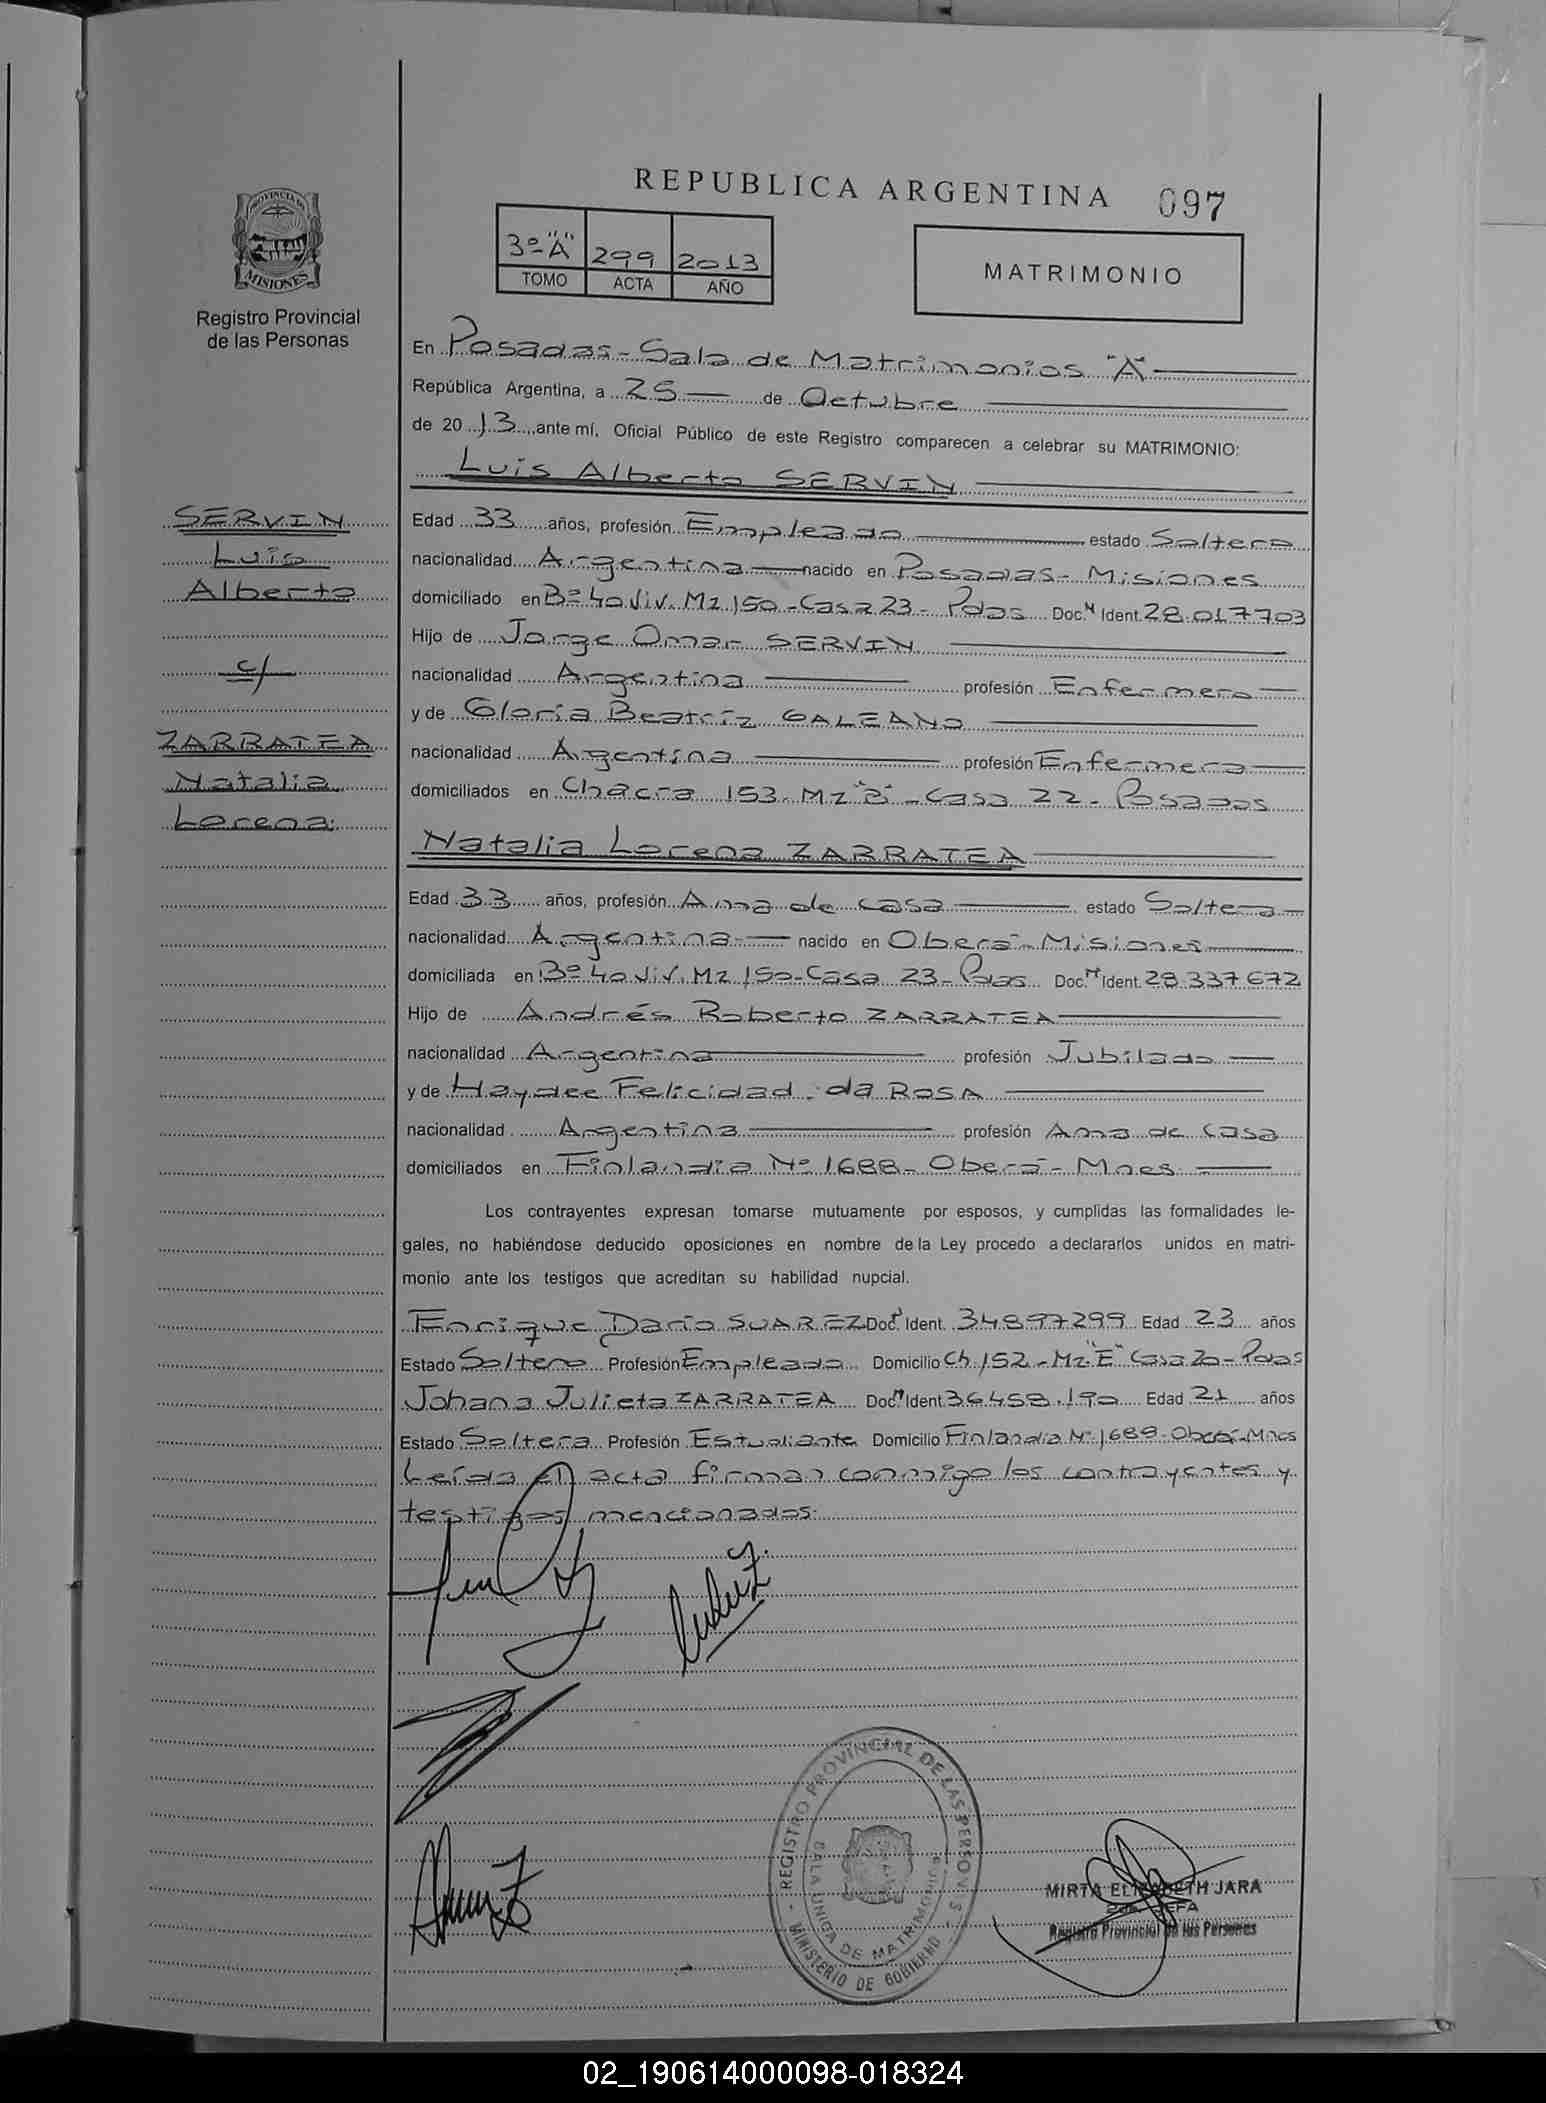 REPUBLICA ARGENTINA 097
PROVINCIA DE MISIONES
Registro Provincial
de las Personas
3º "A" 299 2013
TOMO ACTA AÑO
MATRIMONIO
En Posadas - Sala de Matrimonios "A"
República Argentina, a 25 de Octubre
de 2013, ante mí, Oficial Público de este Registro comparecen a celebrar su MATRIMONIO:
Luis Alberto SERVIN
SERVIN
Luis
Alberto
c/
ZARRATEA
Natalia
Lorena.
Edad 33 años, profesión Empleado estado Soltero
nacionalidad Argentina nacido en Posadas - Misiones
domiciliado en Bº 40 Viv. Mz 150 - Casa 23 - Pdas Doc. N Ident. 28.017703
Hijo de Jorge Omar SERVIN
nacionalidad Argentina profesión Enfermero
y de Gloria Beatríz GALEANO
nacionalidad Argentina profesión Enfermera
domiciliados en Chacra 153. Mz "B" - Casa 22 - Posadas
Natalia Lorena ZARRATEA
Edad 33 años, profesión Ama de casa estado Soltera
nacionalidad Argentina nacido en Oberá - Misiones
domiciliada en Bº 40 Viv. Mz 150 - Casa 23 - Pdas Doc. N Ident. 28.337672
Hijo de Andrés Roberto ZARRATEA
nacionalidad Argentina profesión Jubilado
y de Haydee Felicidad da ROSA
nacionalidad Argentina profesión Ama de casa
domiciliados en Finlandia Nº 1688 - Oberá - Mnes
Los contrayentes expresan tomarse mutuamente por esposos, y cumplidas las formalidades le-
gales, no habiéndose deducido oposiciones en nombre de la Ley procedo a declararlos unidos en matri-
monio ante los testigos que acreditan su habilidad nupcial.
Enrique Darío SUAREZ Doc. Ident. 34897299 Edad 23 años
Estado Soltero Profesión Empleado Domicilio Ch 152 - Mz "E" Casa 20 - Pdas
Johana Julieta ZARRATEA Doc. N Ident. 36458.190 Edad 21 años
Estado Soltera Profesión Estudiante Domicilio Finlandia Nº 1689 - Oberá - Mnes
Leída el acta firman conmigo los contrayentes y
testigos mencionados.
REGISTRO PROVINCIAL DE LAS PERSONAS
SALA UNICA DE MATRIMONIOS
MINISTERIO DE GOBIERNO
MIRTA ELIZABETH JARA
JEFA
Registro Provincial de las Personas
02_190614000098-018324